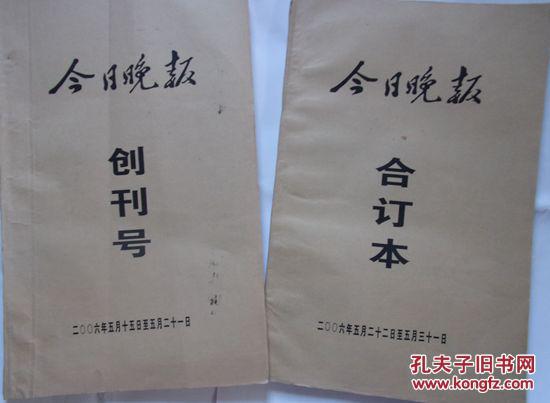 今日晚报
创刊号
二〇〇六年五月十五日至五月二十一日
今日晚报
合订本
二〇〇六年五月二十二日至五月三十一日
孔夫子旧书网
www.kongfz.com